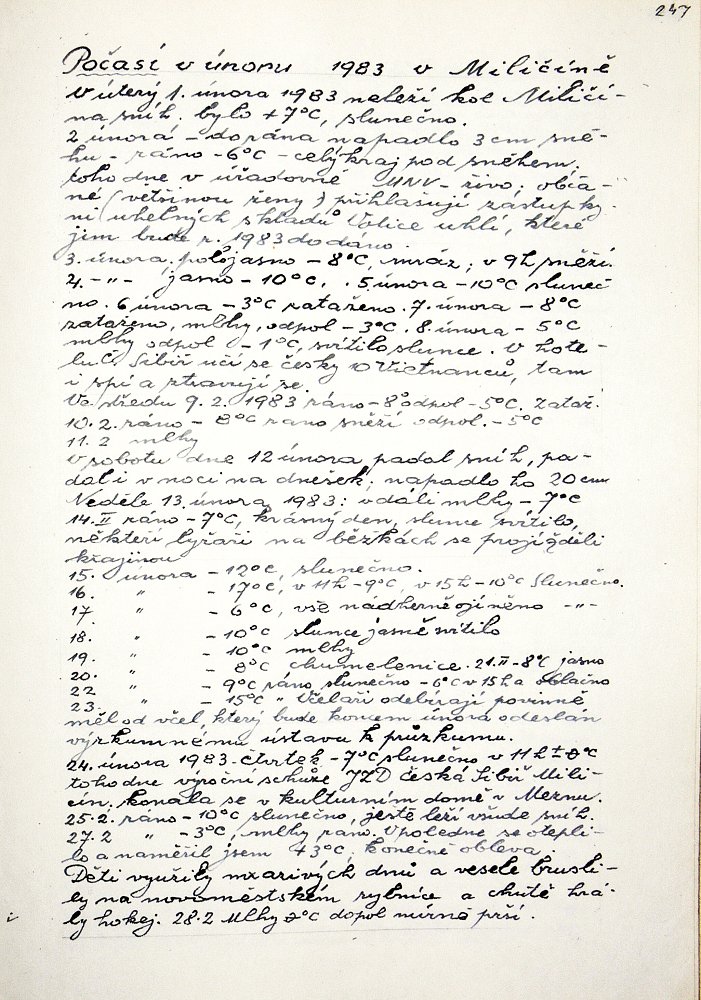 247
Počasí v únoru 1983 v Miličíně
V úterý 1. února 1983 neleží kol Miličí-
na sníh. bylo +7°C, slunečno.
2 února - do rána napadlo 3 cm sně-
hu - ráno -6°C - celý kraj pod sněhem.
toho dne v úřadovně MNV - živo; obča-
né (většinou ženy) přihlašují zástupky-
ni uhelných skladů Votice uhlí, které
jim bude r. 1983 dodáno.
3. února. polojasno -8°C, mráz; v 9h sněží.
4. -"- jasno -10°C. 5 února -10°C sluneč
no. 6 února -3°C zataženo. 7. února -8°C
zataženo, mlhy, odpol -3°C. 8. února -5°C
mlhy odpol -1°C, svítilo slunce. V hote-
lu Č. Sibiř učí se česky 10 Vietnanců, tam
i spí a stravují se.
Ve středu 9.2.1983 ráno -8° odpol -5°C. zataž.
10.2. ráno -8°C rano sněží odpol. -5°C
11.2 mlhy
V sobotu dne 12 února padal sníh, pa-
dal i v noci na dnešek; napadlo ho 20 cm
Neděle 13. února 1983: v dáli mlhy -7°C
14.II ráno -7°C, krásný den, slunce svítilo,
někteří lyžaři na běžkách se projížděli
krajinou
15. února -12°C, slunečno.
16. " -17°C, v 11h -9°C, v 15h -10°C Slunečno.
17 " -6°C, vše nádherně ojíněno -"-
18. " -10°C slunce jasně svítilo
19. " -10°C mlhy
20. " -8°C chumelenice. 21.II -8°C jasno
22 " -9°C ráno slunečno -6°C v 15h a oblačno
23. " -15°C " Včelaři odebírají povinně
měl od včel, který bude koncem února odeslán
výzkumnému ústavu k průzkumu.
24. února 1983. čtvrtek -7°C slunečno v 11h ±0°C
toho dne výroční schůze JZD Česká Sibiř Mili-
čín. konala se v kulturním domě v Meznu.
25.2. ráno -10°C slunečno, ještě leží všude sníh.
27.2 " -3°C, mlhy rano. Vpoledne se otepli-
lo a naměřil jsem +3°C, konečně obleva.
Děti využily mrazivých dnů a vesele brusli-
ly na novoměstském rybníce a chutě hrá-
ly hokej. 28.2 Mlhy 2°C dopol mírně prší.